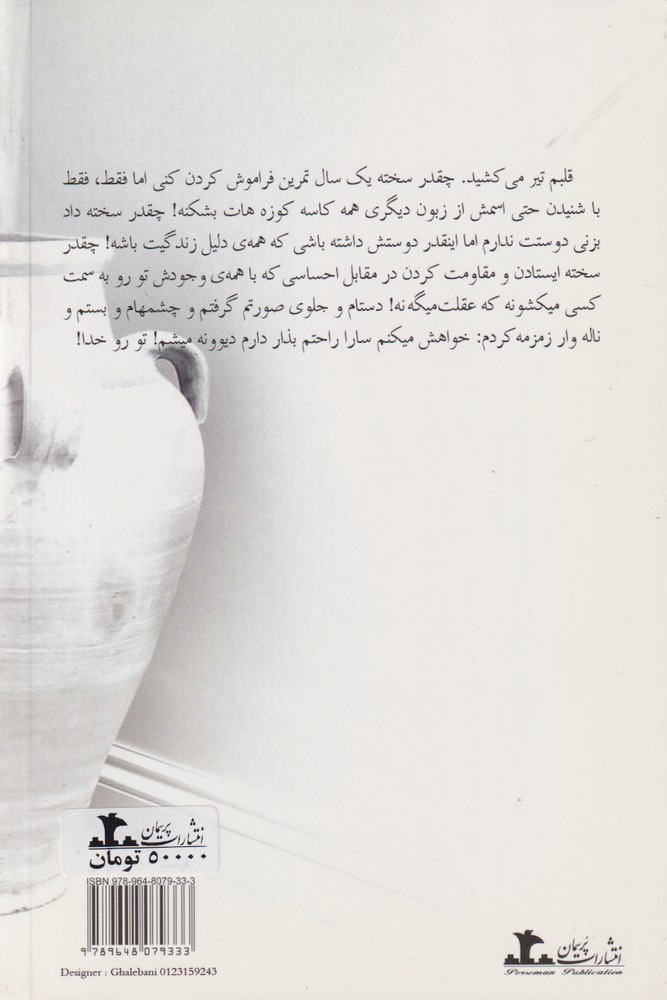 قلبم تیر می‌کشید. چقدر سخته یک سال تمرین فراموش کردن کنی اما فقط، فقط
با شنیدن حتی اسمش از زبون دیگری همه کاسه کوزه هات بشکنه! چقدر سخته داد
بزنی دوستت ندارم اما اینقدر دوستش داشته باشی که همه‌ی دلیل زندگیت باشه! چقدر
سخته ایستادن و مقاومت کردن در مقابل احساسی که با همه‌ی وجودش تو رو به سمت
کسی میکشونه که عقلت میگه نه! دستام و جلوی صورتم گرفتم و چشمهام و بستم و
ناله وار زمزمه کردم: خواهش میکنم سارا راحتم بذار دارم دیوونه میشم! تو رو خدا!
انتشارات پرسمان
۵۰۰۰۰ تومان
ISBN 978-964-8079-33-3
9 789648 079333
Designer : Ghalebani 0123159243
انتشارات پرسمان
Porseman Publication